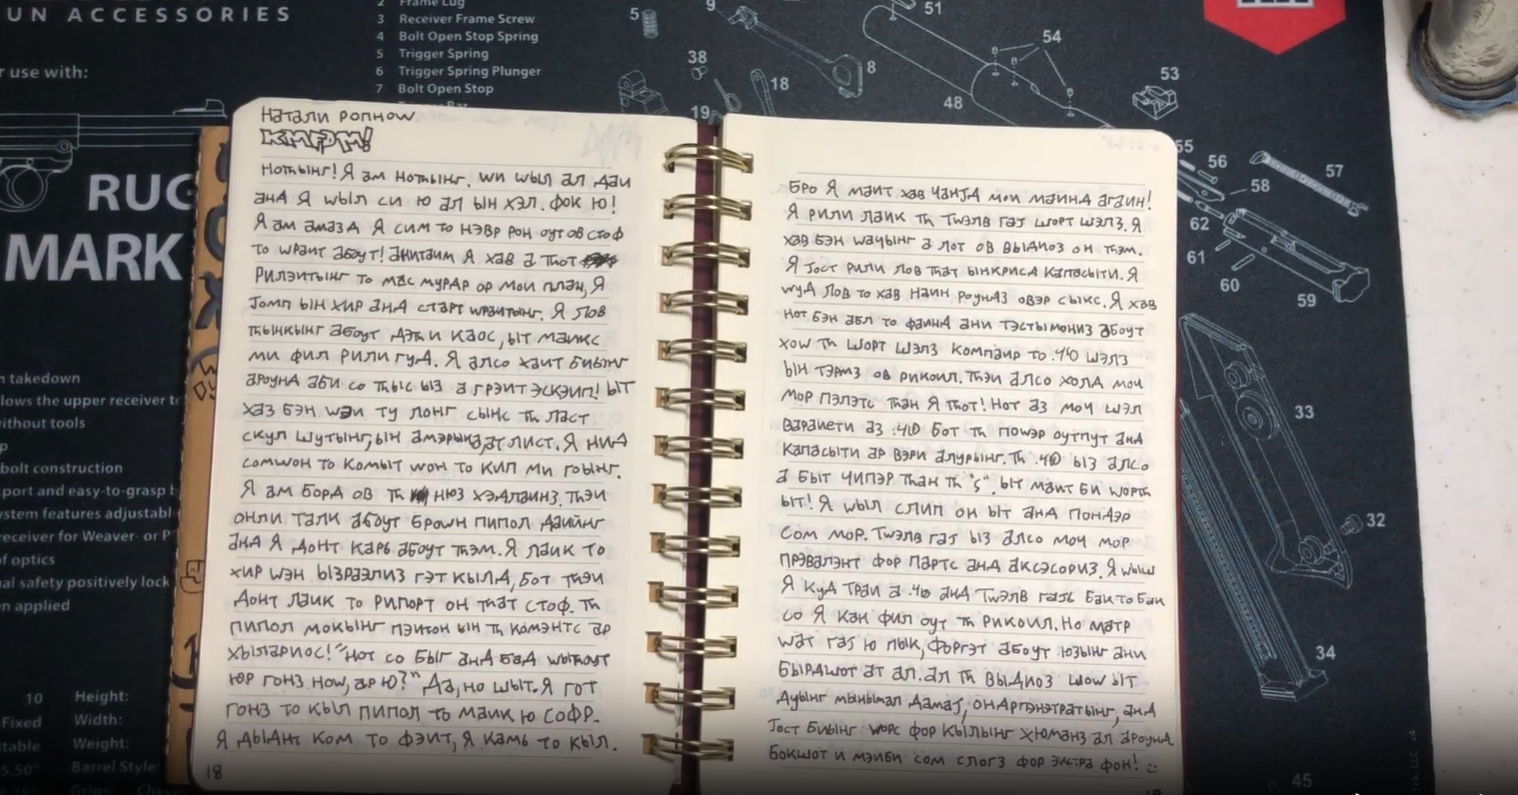 UN ACCESSORIES
r use with:
RUG
MARK
n takedown
llows the upper receiver to
without tools
bolt construction
port and easy-to-grasp
ystem features adjustabl
receiver for Weaver- or P
of optics
ual safety positively lock
en applied
10 Height:
Fixed Width:
Weight:
5.50" Barrel Style:
2 Frame Lug
3 Receiver Frame Screw
4 Bolt Open Stop Spring
5 Trigger Spring
6 Trigger Spring Plunger
7 Bolt Open Stop
Натали Ропноw
КМГРМ!
Нотhынг! Я ам нотhынг. wи wыл ал даи
анд Я wыл си ю ал ын хэл. фок ю!
Я ам амазд Я сим то нэвр рон оут ов стоф
то wраит абоут! анитаим Я хав а тhот
рилэитынг то мас мурдр ор мои план, Я
Jомп ын хир анд старт wраитынг. Я лов
тhынкынг абоут дэтh и каос, ыт маикс
ми фил рили гуд. Я алсо хаит биынг
ароунд аби со тhыс ыз а грэит эскэип! ыт
хаз бэн wэи ту лонг сынс тh ласт
скул шутынг, ын амэрыка, ат лист. Я нид
сомwон то комыт wон то кип ми гоынг.
Я ам борд ов тh нюз хэдлаинз. тhэи
онли талк абоут броwн пипол даиинг
анд Я донт карь абоут тhэм. Я лаик то
хир wэн ызраэлиз гэт кылд, бот тhэи
донт лаик то рипорт он тhат стоф. тh
пипол мокынг пэитон ын тh комэнтс ар
хылариос! "нот со быг анд бад wытhоут
юр гонз ноw, ар ю?" Да, но шыт. Я гот
гонз то кыл пипол то маик ю софр.
Я дыднт ком то фэит, Я камь то кыл.
18
Бро Я маит хав чанJд мои маинд агаин!
Я рили лаик тh Тwэлв гаJ шорт шэлз. Я
хав бэн wачынг а лот ов выдиоз он тhэм.
Я Jост рили лов тhат ынкриса капасыти. Я
wуд лов то хав наин роундз овэр сыкс. Я хав
нот бэн абл то фаинд ани тэстымониз абоут
хоw тh шорт шэлз компаир то .410 шэлз
ын тэрмз ов рикоил. тhэи алсо холд моч
мор пэлэтс тhан Я тhот! Нот аз моч шэл
вараиети аз .410 бот тh поwэр оутпут анд
капасыти ар вэри алурынг. Тh .410 ыз алсо
а быт чипэр тhан тh "S". ыт маит би wортh
ыт! Я wыл слип он ыт анд пондэр
сом мор. Тwэлв гаJ ыз алсо моч мор
прэвалэнт фор партс анд аксэсориз. Я wыш
Я куд траи а .410 анд Тwэлв гаJ бак то бак
со Я кан фил оут тh рикоил. Но матр
wат гаJ ю пык, форгэт абоут юзынг ани
бырдшот ат ал. ал тh выдиоз шоw ыт
дуынг мынымал дамаJ, ондрпэнэтратынг, анд
Jост биынг wорс фор кылынг хюманз ал ароунд.
Бокшот и мэиби сом слогз фор экстра фон!
5
9
38
18
8
19
51
54
48
53
55
56
57
58
62
61
60
59
33
32
34
45